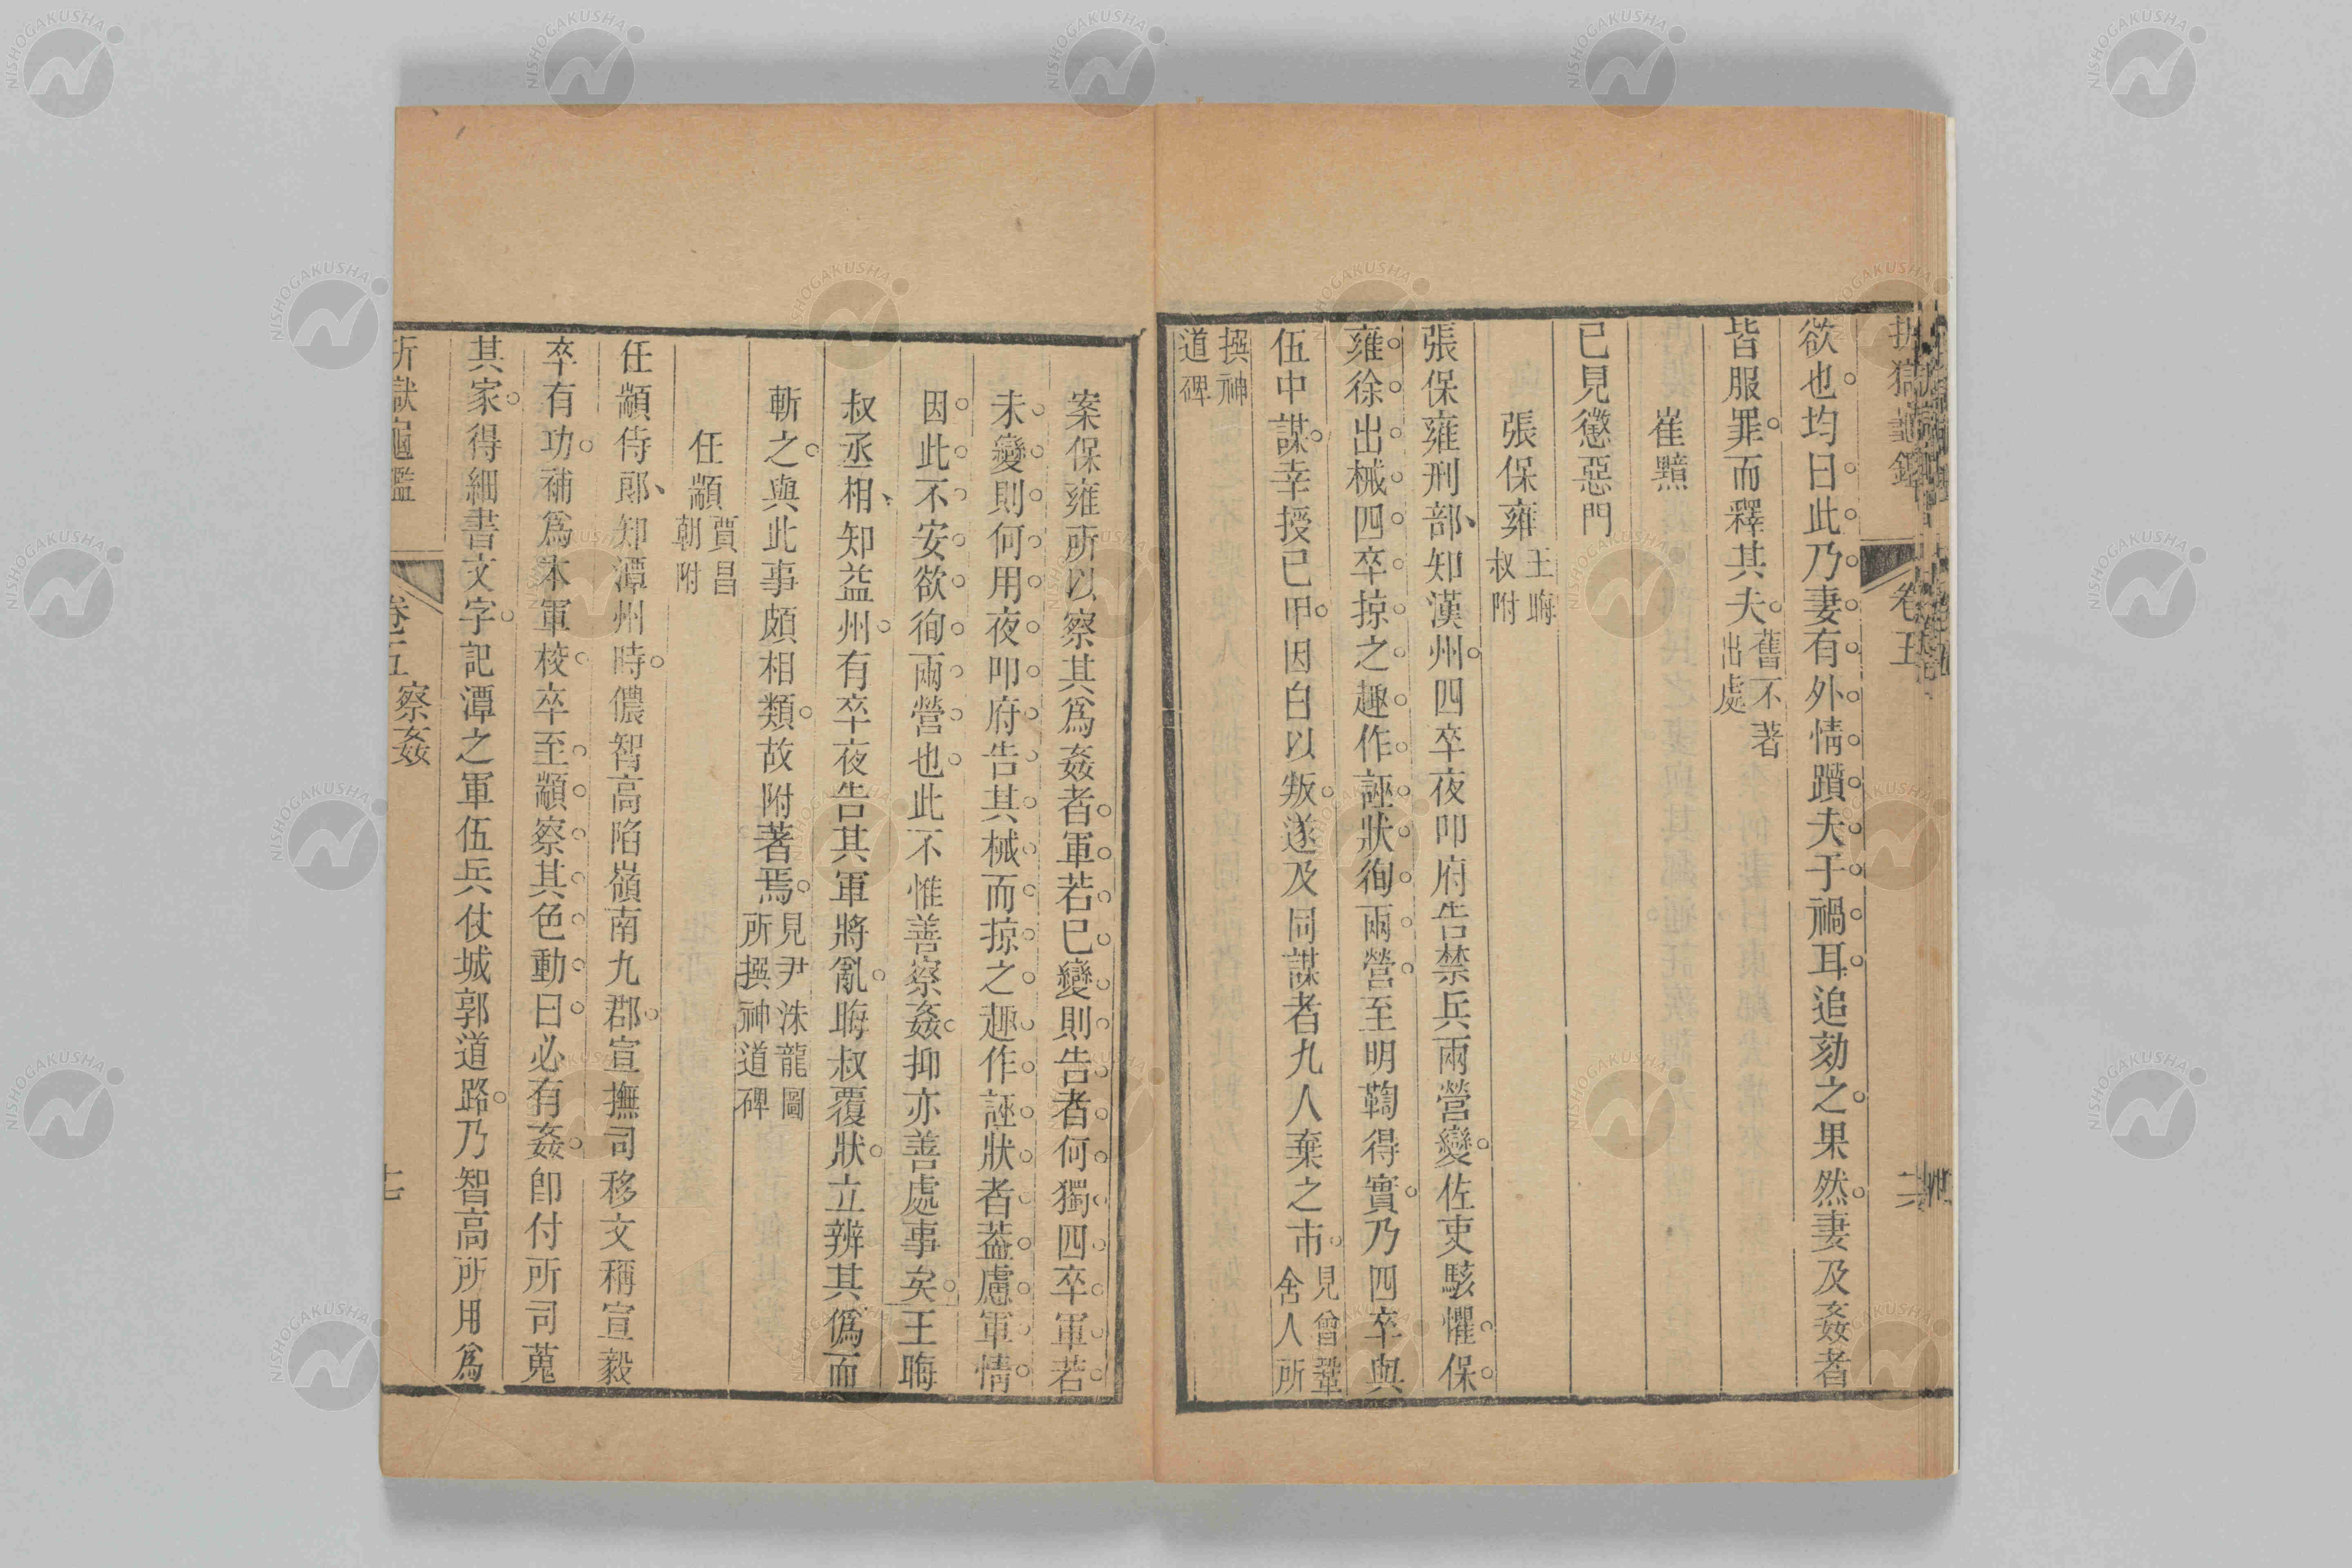 折獄龜鑑 卷五 六
欲也均曰此乃妻有外情躓夫于禍耳追劾之果然妻及姦者
皆服罪而釋其夫舊不著出處
崔黯
已見懲惡門
張保雍王晦叔附
張保雍刑部知漢州四卒夜叩府告禁兵兩營變佐吏駭懼保
雍徐出械四卒掠之趣作誣狀徇兩營至明鞫得實乃四卒與
伍中謀幸授已甲因白以叛遂及同謀者九人棄之市見曾鞏舍人所
撰神道碑
案保雍所以察其爲姦者軍若已變則告者何獨四卒軍若
未變則何用夜叩府告其械而掠之趣作誣狀者葢慮軍情
因此不安欲徇兩營也此不惟善察姦抑亦善處事矣王晦
叔丞相知益州有卒夜告其軍將亂晦叔覆狀立辨其僞而
斬之與此事頗相類故附著焉見尹洙龍圖所撰神道碑
任顓賈昌朝附
任顓侍郎知潭州時儂智高陷嶺南九郡宣撫司移文稱宣毅
卒有功補爲本軍校卒至顓察其色動曰必有姦卽付所司蒐
其家得細書文字記潭之軍伍兵仗城郭道路乃智高所用爲
折獄龜鑑 卷五 察姦 七
NISHOGAKUSHA